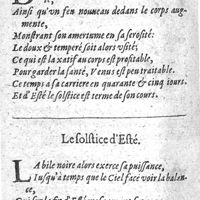 Ainsi qu'vn feu nouueau dedans le corps augmente,
Monstrant son amertume en sa ferosité:
Le doux & temperé soit alors vsité;
Ce qui est laxatif au corps est profitable,
Pour garder la santé, Venus est peu traitable.
Ce temps a sa carriere en quarante & cinq iours.
Et d'Esté le solstice est terme de son cours.
Le solstice d'Esté.
LA bile noire alors exerce sa puissance,
Iusqu'à temps que le Ciel face voir la balence,